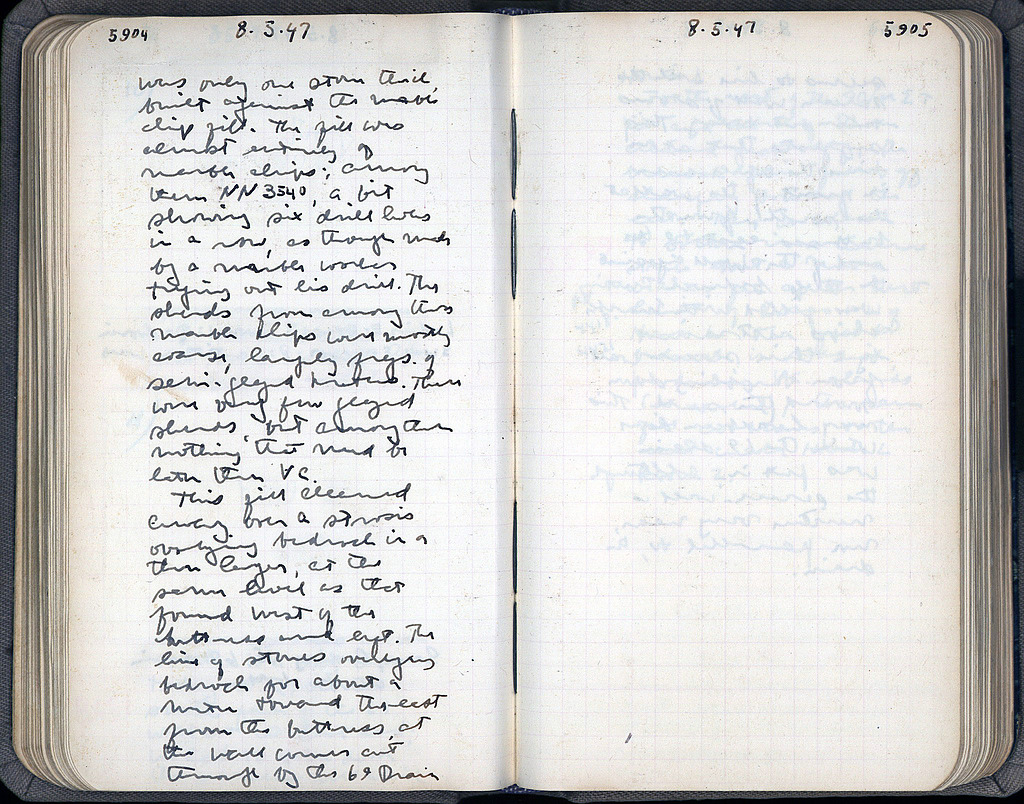 5904
8.5.47
was only one stone thick,
built against the marble
chip fill. The fill was
almost entirely of
marble chips; among
them NN 3540, a bit
showing six drill holes
in a row, as though made
by a marble worker
trying out his drill. The
sherds from among these
marble chips were mostly
coarse, largely frgs. of
semi-glazed kraters. There
were very few glazed
sherds, but among them
nothing that need be
later than VC.
This fill cleaned
away over a strosis
overlying bedrock in a
thin layer, at the
same level as that
found west of the
buttress and
The
line of stones overlying
bedrock for about a
meter toward the east
from the buttress, at
the wall comes cut
through by the 69 Drain
8.5.47
5905